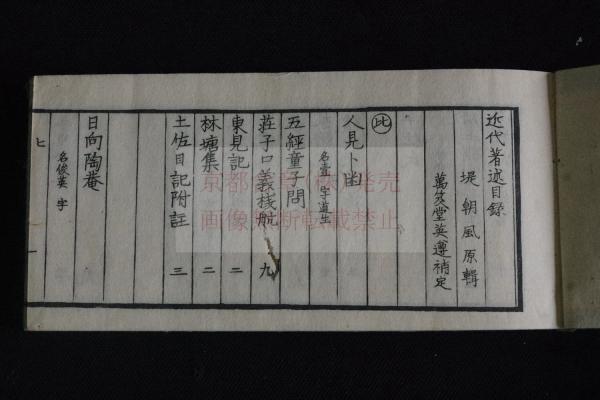 近代著述目録
堤朝風原輯
萬笈堂英遵補定
㊋比
人見卜幽
名壹 字道生
五經童子問
莊子口義棧航 九
東見記 二
林塘集 二
土佐日記附註 三
日向陶菴
名俊英 字
ヒ 一
画像無断転載禁止